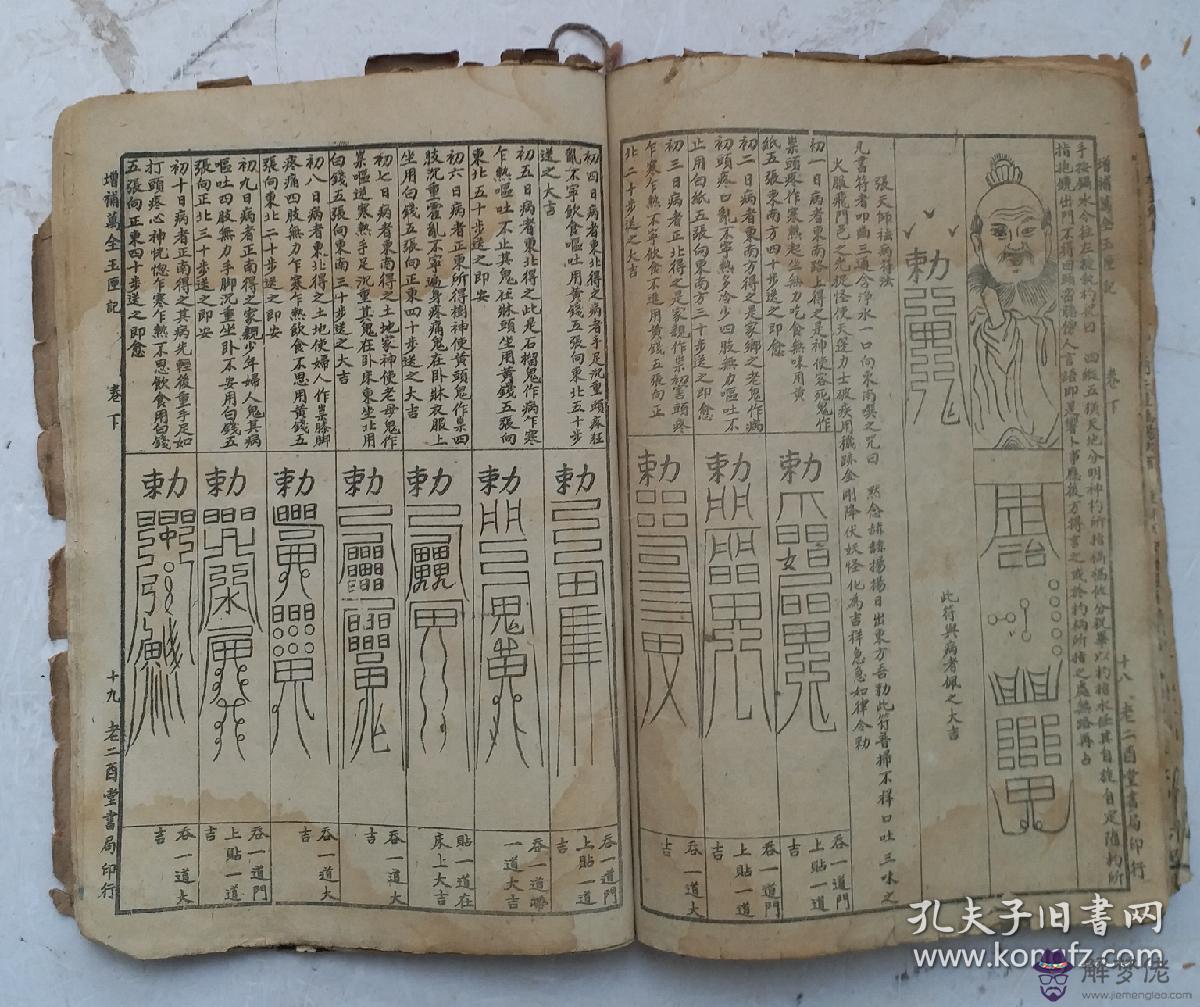 增補萬全玉匣記
卷下
十八
老二酉堂書局印行
手按鍋水令柱左旋執杓祝曰
四縱五橫天地分明神杓所指禍福攸分祝畢以杓指水任其自旋自定隨杓所
指抱鏡出門不得回頭密聽傍人言語即是響卜事應後方得言之或於杓柄所指之處無路再占
敕
此符與病者佩之大吉
張天師祛病符法
凡書符者叩齒三通含淨水一口向東南噀之咒曰
赫赫陽陽日出東方吾敕此符普掃不祥口吐三昧之
火服飛門邑之光捉怪使天蓬力士破疾用穢跡金剛降伏妖怪化為吉祥急急如律令敕
初一日病者東南路上得之是神使客死鬼作
祟頭疼作寒熱起坐無力吃食無味用黃
紙五張東南方四十步送之即愈
敕
吞一道門
上貼一道
大吉
初二日病者東南方得之是家鄉之老鬼作病
初頭疼口亂不寧熱多冷少四肢無力嘔吐不
止用白紙五張向東南方三十步送之即愈
敕
吞一道門
上貼一道
吉
初三日病者正北得之是家親作祟初害頭疼
乍寒乍熱不寧飲食不進用黃錢五張向正
北二十步送之大吉
敕
吞一道大
吉
初四日病者東北得之病者手足沉重頭疼狂
亂不寧飲食嘔吐用黃錢五張向東北五十步
送之大吉
敕
吞一道門
上貼一道
吉
初五日病者東北得之此是石榴鬼作病乍寒
乍熱嘔吐不止其鬼在牀頭坐用黃錢五張向
東北五十步送之即安
敕
吞一道
一道大吉
初六日病者正東所得樹神使黃頭鬼作祟四
肢沉重霍亂不寧遍身疼痛鬼在臥牀衣服上
坐用白錢五張向正東四十步送之大吉
敕
貼一道在
床上大吉
初七日病者東南得之土地家神使老母鬼作
祟嘔逆寒熱手足沉重其鬼在臥床東坐北用
白錢五張向東南三十步送之大吉
敕
吞一道大
吉
初八日病者東北得之土地使婦人作祟膝腳
疼痛四肢無力乍寒乍熱飲食不思用黃錢五
張向東北二十步送之即安
敕
吞一道大
吉
初九日病者正南得之家親少年婦人鬼其病
嘔吐四肢無力手腳沉重坐臥不安用白錢五
張向正北三十步送之即安
敕
吞一道門
上貼一道
吉
初十日病者正南得之其病先輕後重手足如
打頭疼心神恍惚乍寒乍熱不思飲食用白錢
五張向正東四十步送之即愈
敕
吞一道大
吉
增補萬全玉匣記
卷下
十九
老二酉堂書局印行
孔夫子旧书网
www.kongfz.com
解梦佬
www.jiemenglao.com